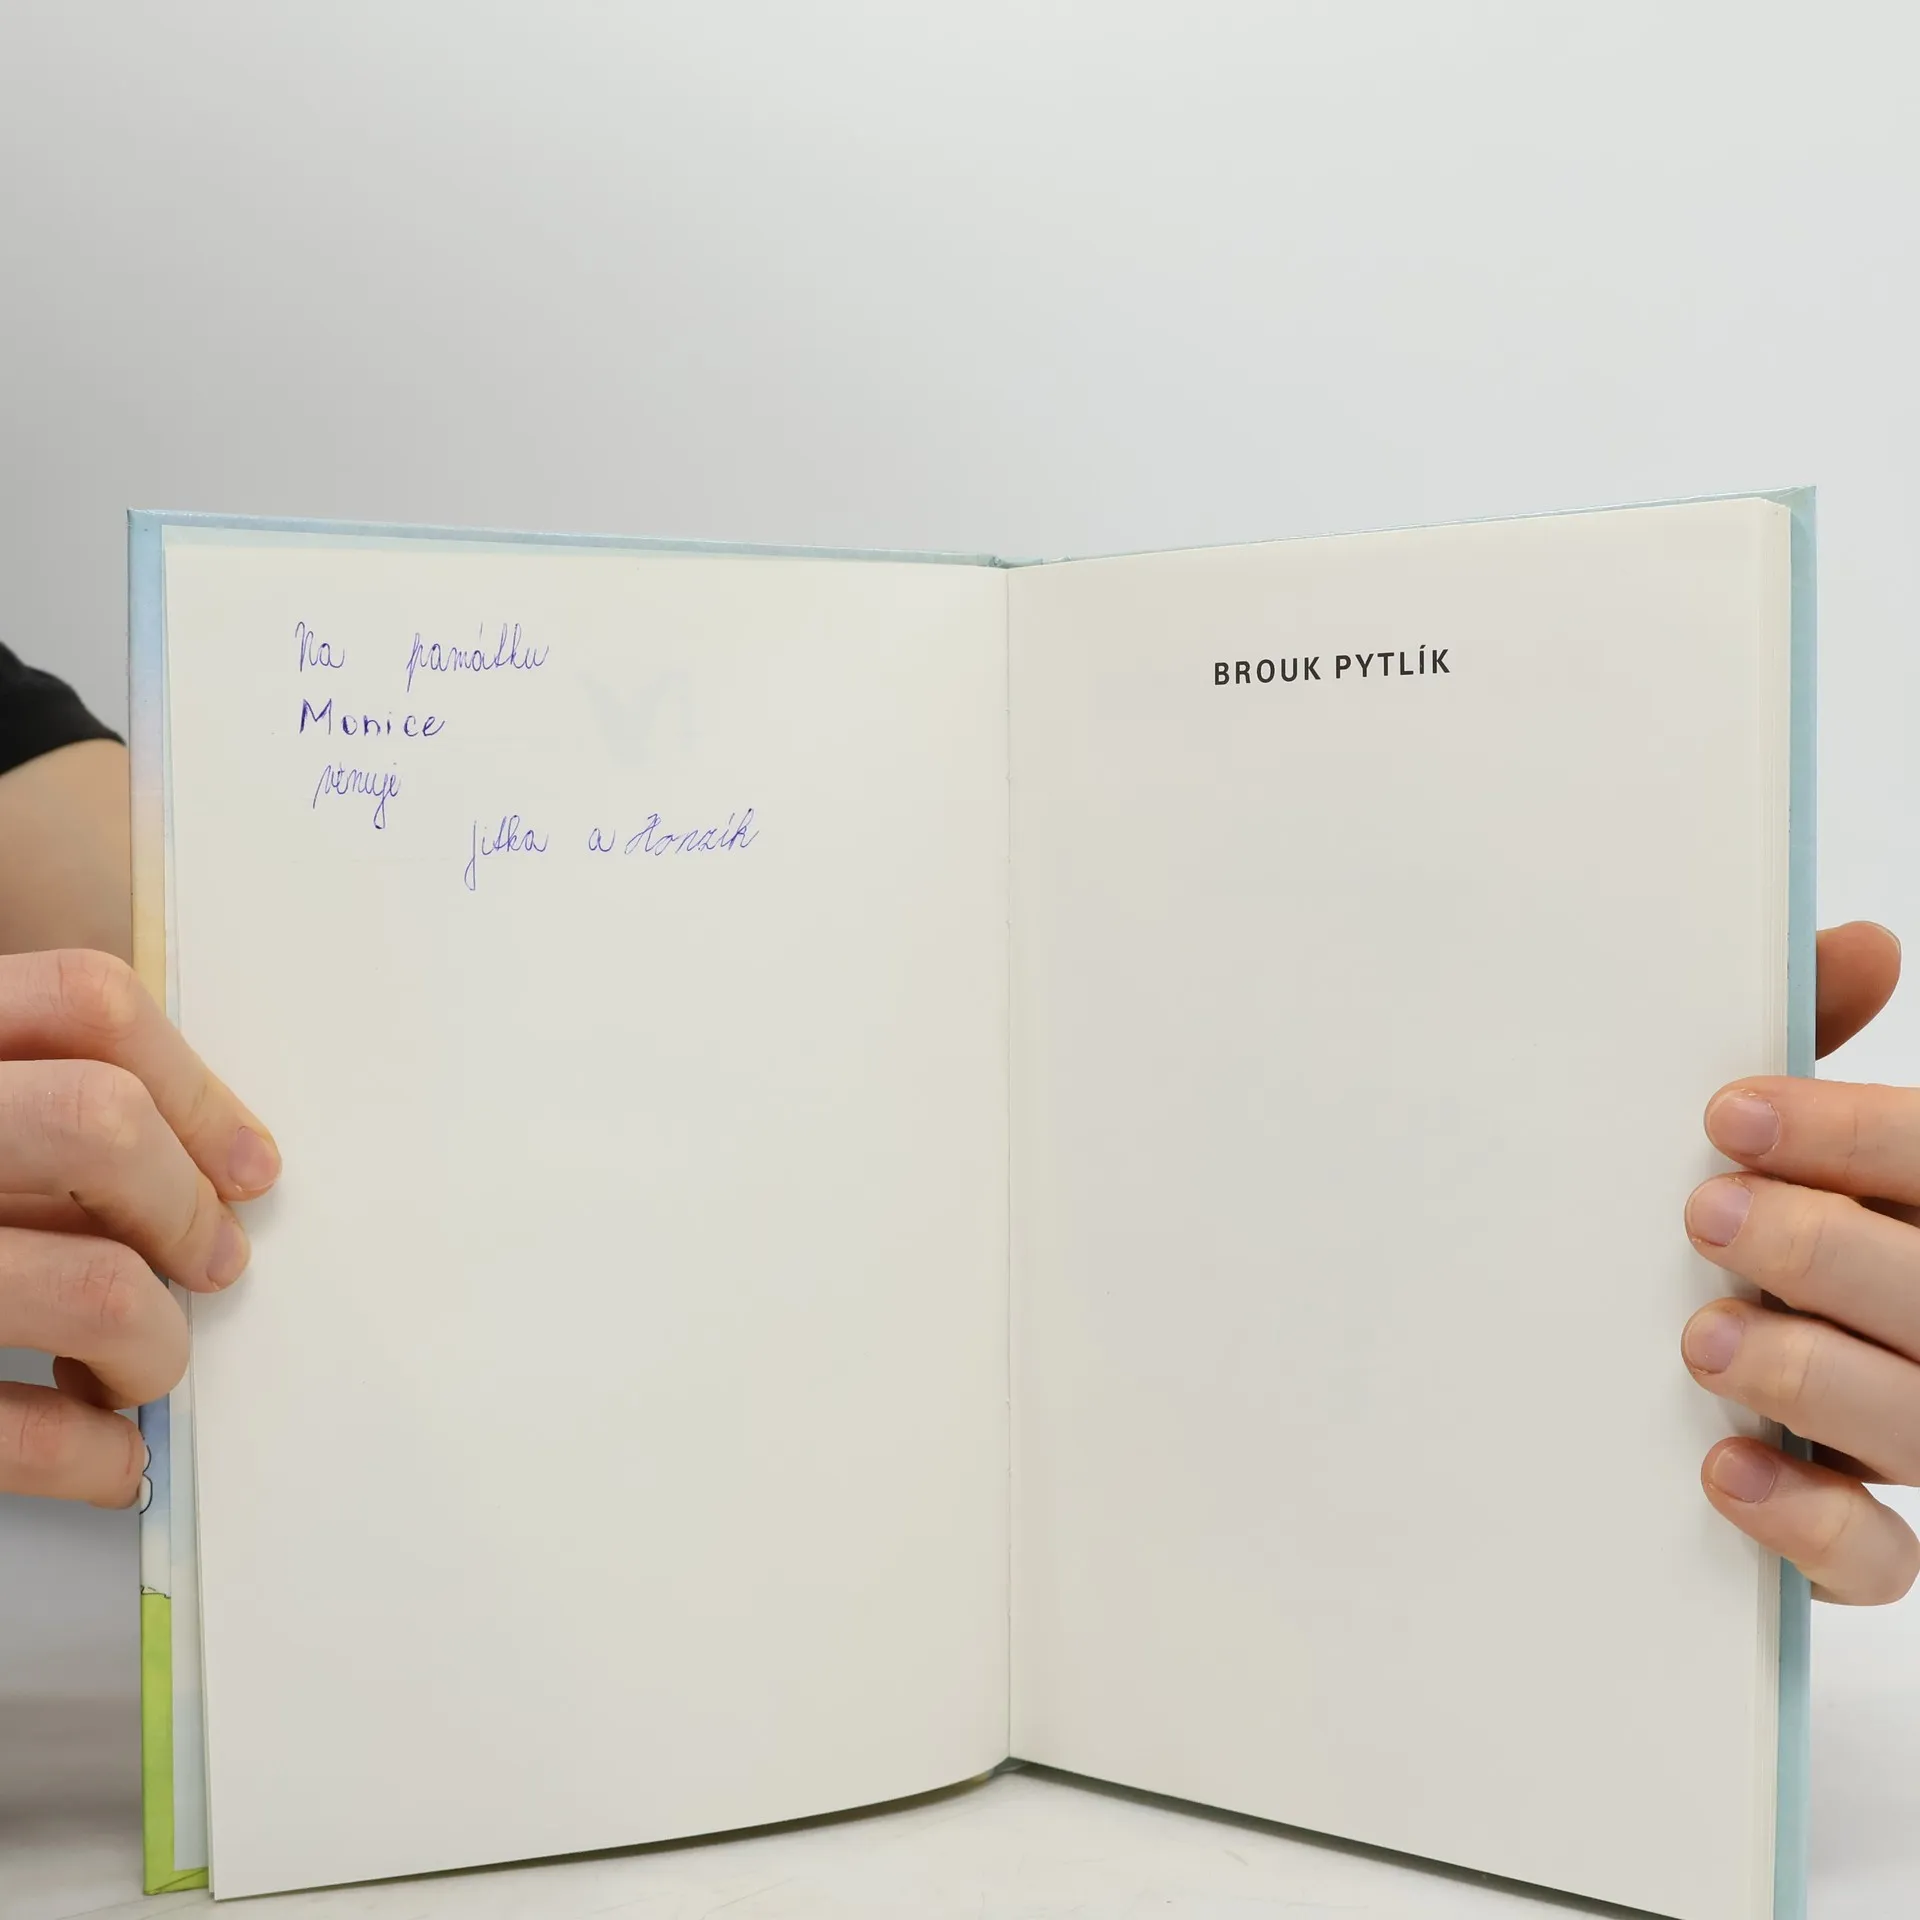 Na památku
Monice
věnuje
Jitka a Honzík
BROUK PYTLÍK